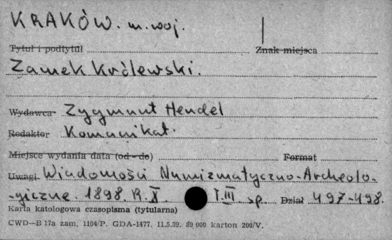 KRAKÓW. m. woj.
Tytuł i podtytuł Znak miejsca
Zamek Królewski.
Wydawca Zygmunt Hendel
Redaktor Komunikat.
Miejsce wydania data (od - do) Format
Uwagi Wiadomości Numizmatyczno-Archeolo-
-giczne. 1898. R. X T. III sp. Dział 497-498.
Karta katologowa czasopisma (tytularna)
CWD—B 17a zam. GDA-1477. 11.5.52. karton 200/V.